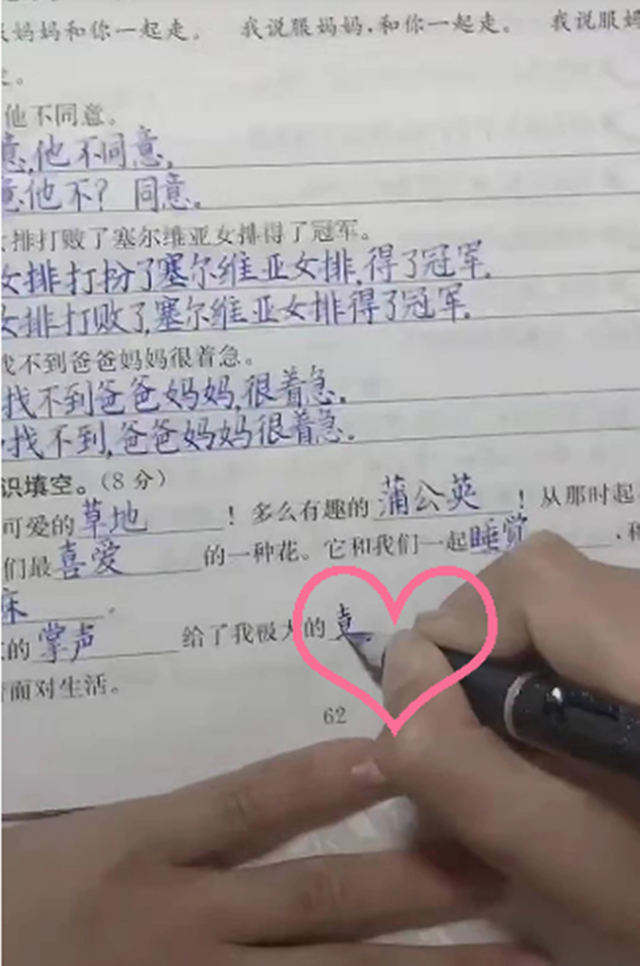 妈妈和你一起走。 我说服妈妈，和你一起走。 我说服妈
他不同意。
意，他不同意，
意他不？同意。
女排打败了塞尔维亚女排得了冠军。
女排打扮了塞尔维亚女排，得了冠军，
女排打败了，塞尔维亚女排得了冠军，
找不到爸爸妈妈很着急。
找不到爸爸妈妈，很着急。
找不到，爸爸妈妈很着急。
识填空。（8分）
可爱的草地！多么有趣的蒲公英！从那时起
们最喜爱的一种花。它和我们一起睡觉，和
床。
的掌声给了我极大的
面对生活。
62